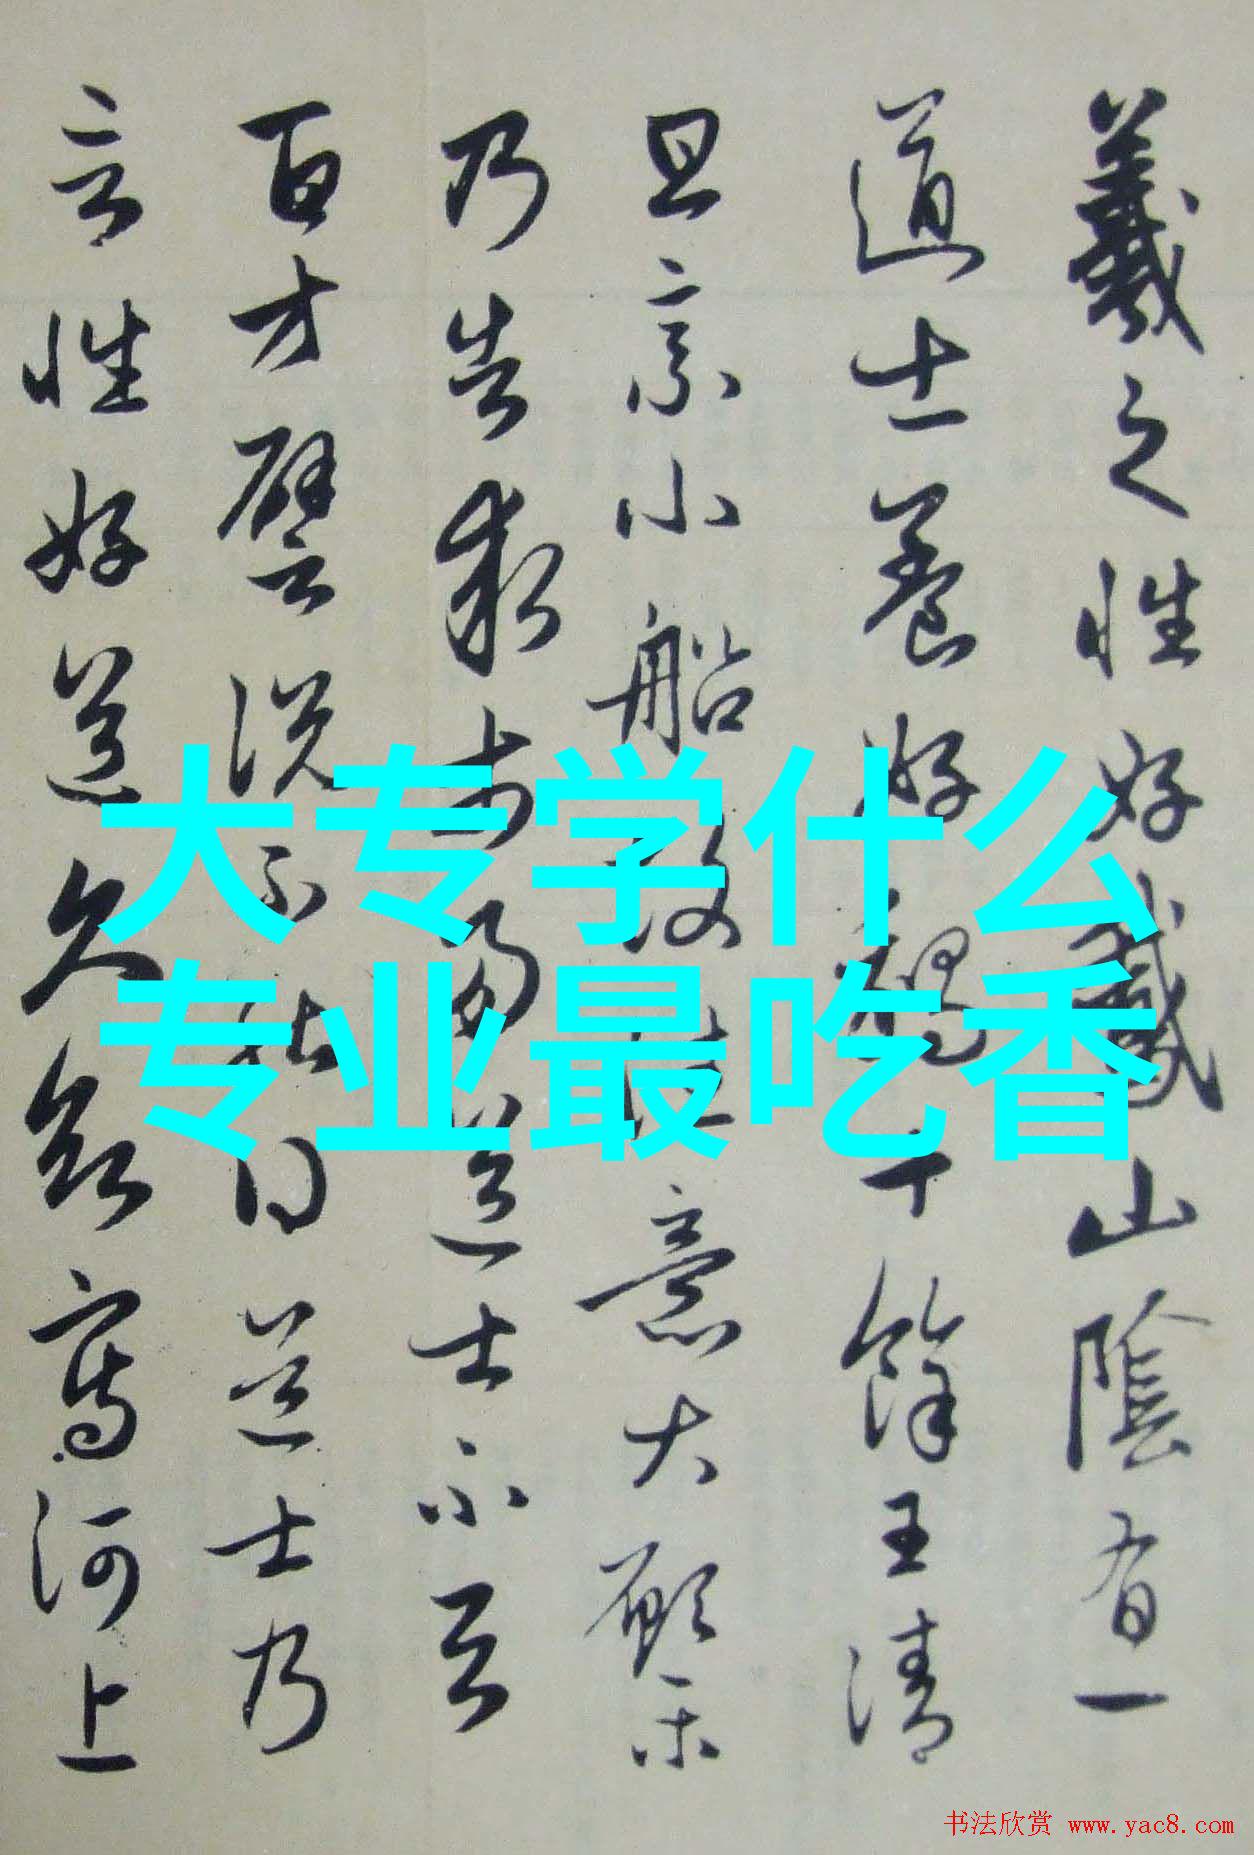 羲之性好鵞山陰有一
道士養好鵝十餘王清
旦乘小船故往意大願樂
乃告求市易道士不与
百方譬說不能得道士乃
言性好道久欲寫河上
大专学什么
专业最吃香
书法欣赏 www.yac8.com